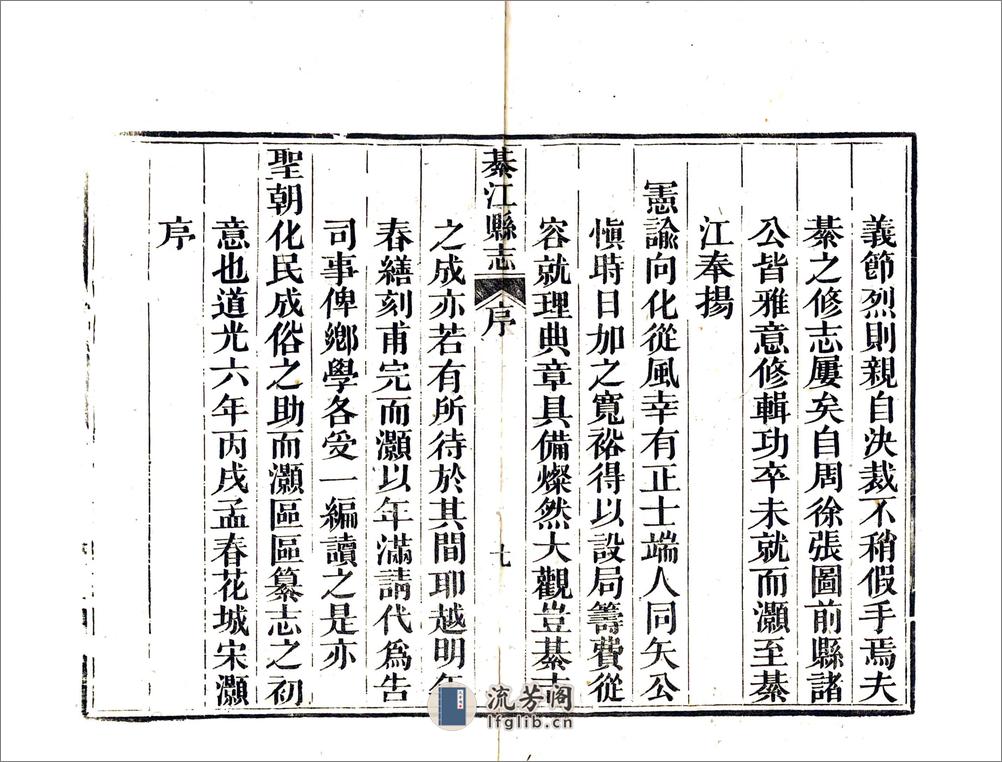 義節烈則親自決裁不稍假手焉夫
綦之修志屢矣自周徐張圖前縣諸
公皆雅意修輯功卒未就而灝至綦
江奉揚
憲諭向化從風幸有正士端人同矢公
慎時日加之寬裕得以設局籌費從
容就理典章具備燦然大觀豈綦志
綦江縣志 序 九
之成亦若有所待於其間耶越明年
春繕刻甫完而灝以年滿請代爲告
司事俾鄉學各受一編讀之是亦
聖朝化民成俗之助而灝區區纂志之初
意也道光六年丙戌孟春花城宋灝
序
流芳阁
lfglib.cn